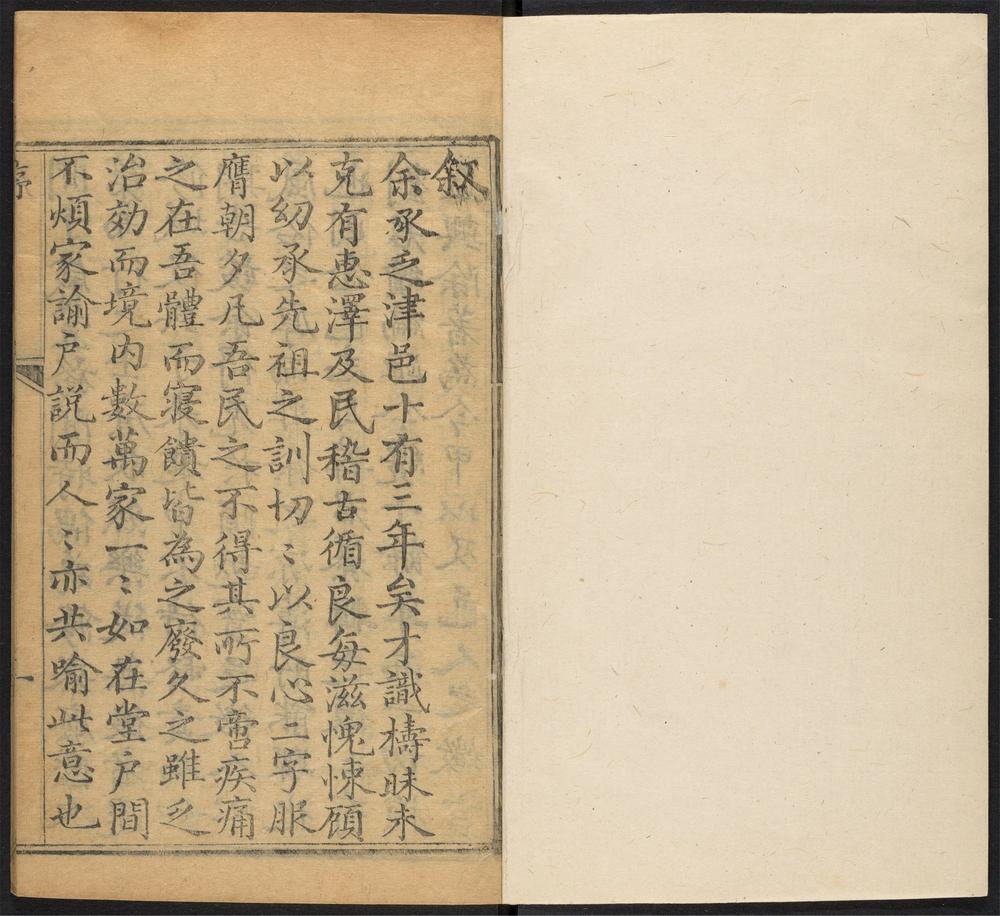 叙
余承乏津邑十有三年矣才識檮昧未
克有惠澤及民稽古循良每滋愧悚顧
以幼承先祖之訓切〻以良心二字服
膺朝夕凡吾民之不得其所不啻疾痛
之在吾體而寝饋皆為之廢久之雖乏
治効而境内數萬家一〻如在堂户間
不煩家諭户説而人〻亦共喻此意也
序
一